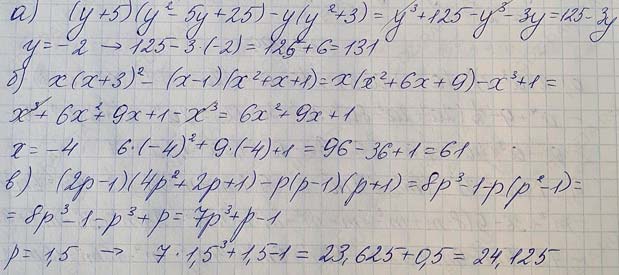 а) (y+5)(y²-5y+25)-y(y²+3)=y³+125-y³-3y=125-3y
y=-2 → 125-3·(-2)=125+6=131
б) x(x+3)²-(x-1)(x²+x+1)=x(x²+6x+9)-x³+1=
x³+6x²+9x+1-x³=6x²+9x+1
x=-4 6·(-4)²+9·(-4)+1=96-36+1=61
в) (2p-1)(4p²+2p+1)-p(p-1)(p+1)=8p³-1-p(p²-1)=
=8p³-1-p³+p=7p³+p-1
p=1,5 → 7·1,5³+1,5-1=23,625+0,5=24,125